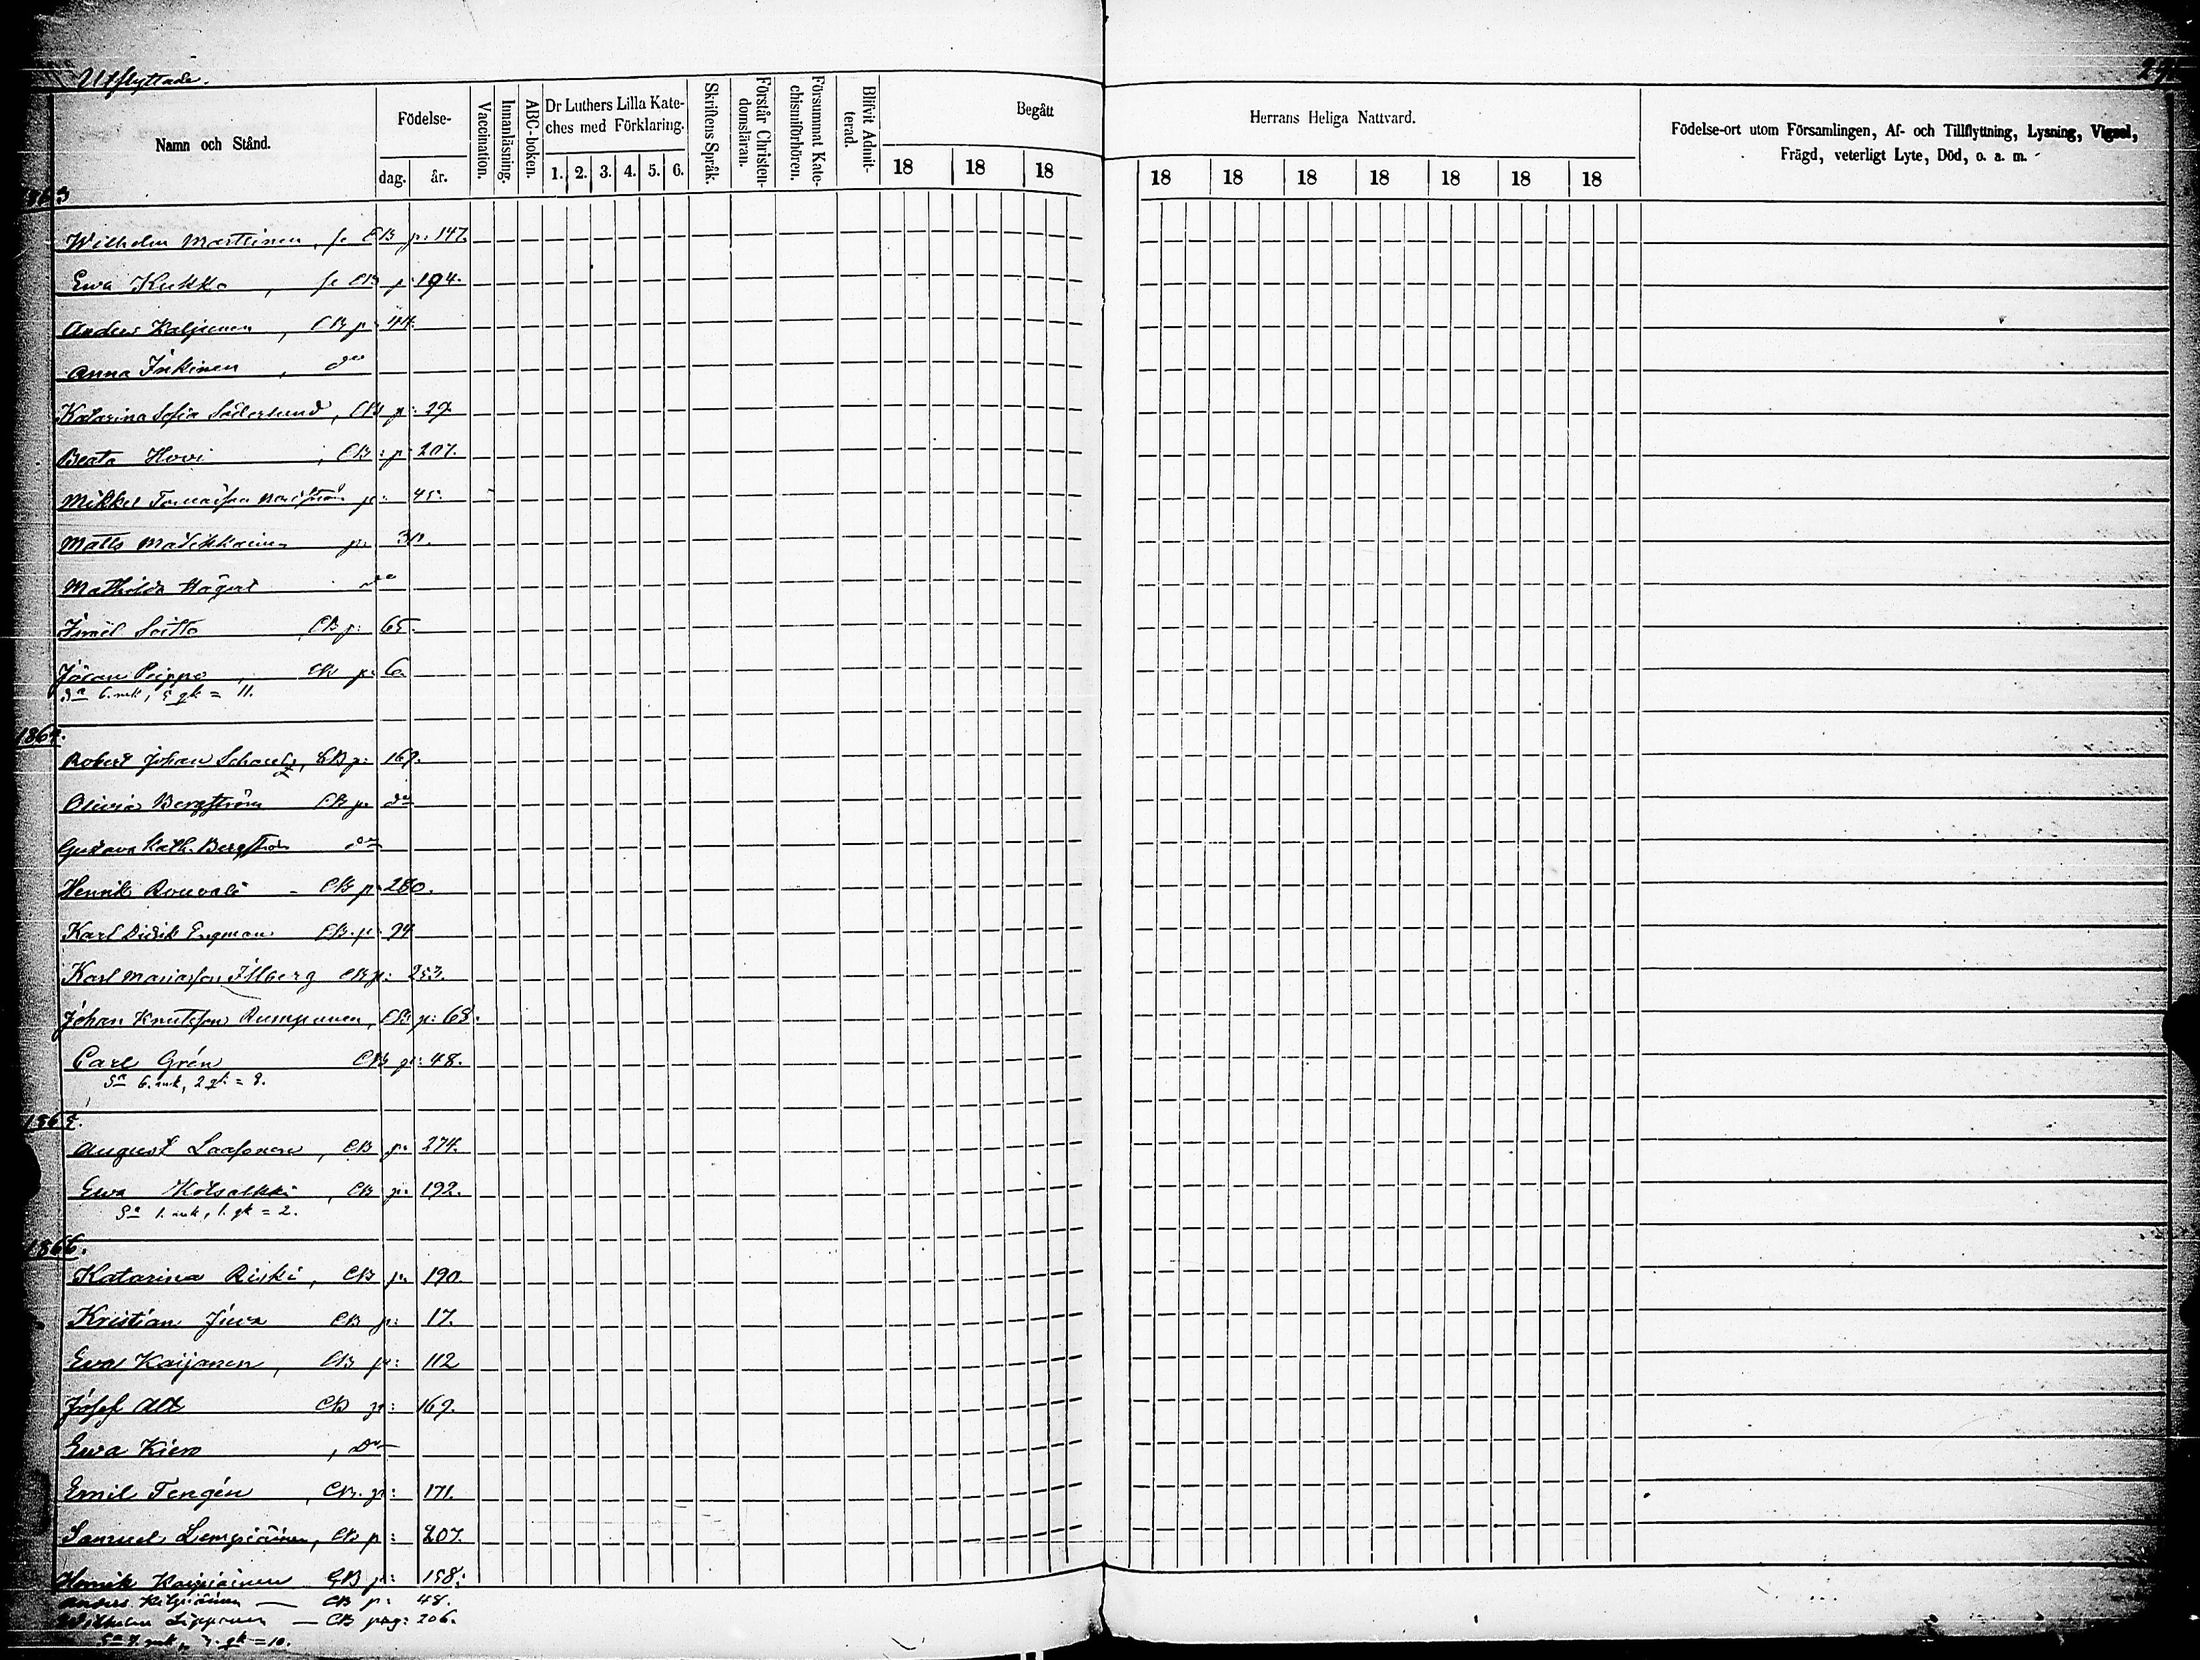 Utflyttade.
Namn och Stånd.
Födelse-
dag. år.
Vaccination.
Innanläsning.
ABC-boken.
Dr Luthers Lilla Kate-
ches med Förklaring.
1. 2. 3. 4. 5. 6.
Skriftens Språk.
Förstår Christen-
domsläran.
Försummat Kate-
chismiförhören.
Blifvit Admit-
terad.
Begått
Herrans Heliga Nattvard.
18 18 18 18 18 18 18 18 18 18
Födelse-ort utom Församlingen, Af- och Tillflyttning, Lysning, Vigsel,
Frägd, veterligt Lyte, Död, o. a. m.
1863
Wilhelm Marttinen, se CB p: 147.
Ewa Kukko, se CB p: 194.
Anders Kaljunen, CB p: 44.
Anna Inkinen, d:o
Katarina Sofia Söderlund, CB p: 29
Beata Hovi, CB: p: 207.
Mikkel p: 45.
Matts p: 30.
Mathilda d:o
Ismël Soitto CB p: 65.
Jöran Peippo, CB p: 6.
S:a 6. mk, 5 qk = 11.
1864.
Robert Johan CB p: 169.
Olivia Bergström CB p: d:o
Gustava Kath. Bergström d:o
Henrik Rouvali - CB p: 280.
Karl Didik Engman CB. p: 94
Karl Mariasson Illberg CB p: 253.
Johan Knutsson Rumpunen, CB p: 63.
Carl Grén CB p: 48.
S:a 6. mk, 2 qk = 8.
1865.
August Laasonen, CB p: 274.
Ewa Kotsalkki, CB p: 192.
S:a 1. mk, 1. qk = 2.
1866.
Katarina Riski, CB p: 190.
Kristian Juva CB p: 17.
Eva Kaijanen, CB p: 112
Josef Alt CB p: 169.
Ewa Kiero, D:o
Emil Tengén, CB. p: 171.
Samuel Lempiäinen, CB p: 207.
Henrik Kaipiainen CB p: 158.
Anders Kilpiäinen — CB p: 48.
Wilhelm Lipponen — CB pag: 206.
S:a 7. mk, 3. qk = 10.